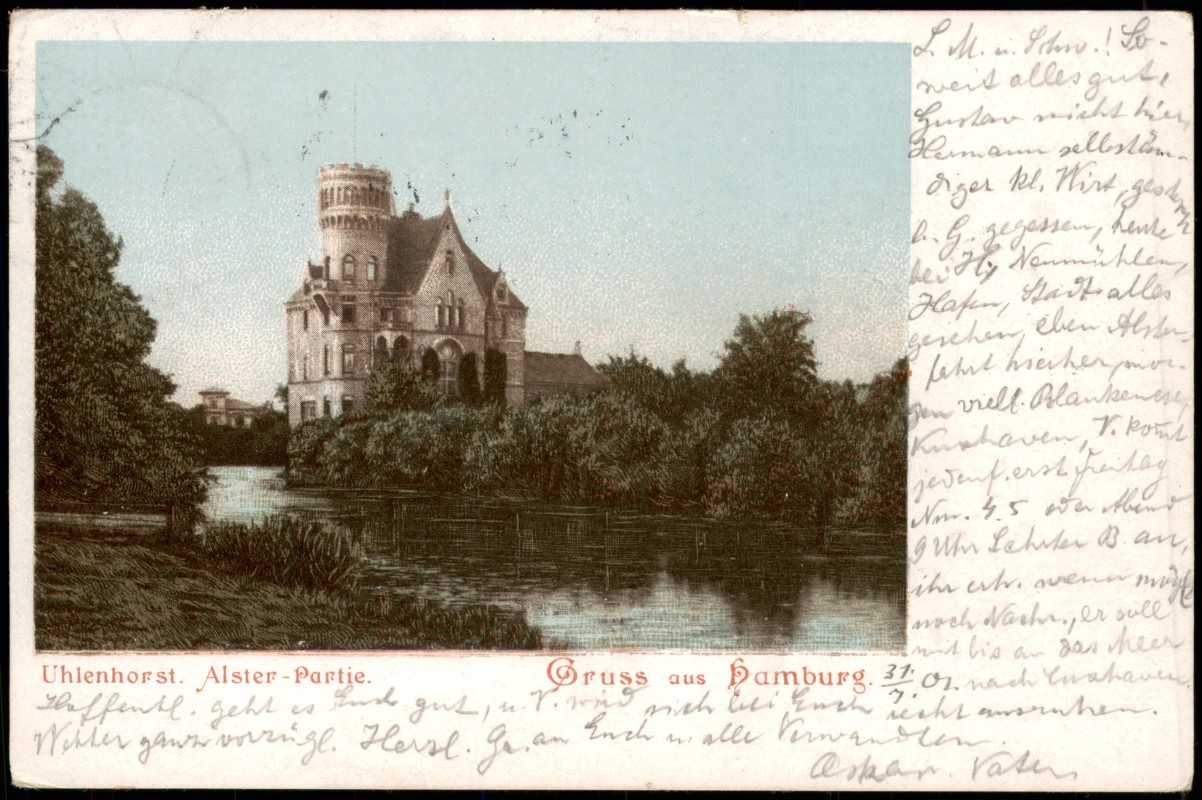 L. M. u. Schw.! So-
weit alles gut,
Gustav nicht hier,
Hermann selbstän-
diger kl. Wirt, gestern
b. G. gegessen, heute
bei H, Neumühlen,
Hafen, Stadt alles
gesehen, eben Alster-
fahrt hierher, mor-
gen viell. Blankenese,
Kuxhaven, V. komt
jedenf. erst Freitag
Nm. 4.5 oder Abend
9 Uhr Lehrter B. an,
ihr erh. wenn mögl
noch Nachr., er soll
mit bis an das Meer
nach Cuxhaven.
Uhlenhorst. Alster-Partie.
Gruss aus Hamburg.
31./7. 01.
Hoffentl. geht es Euch gut, u. V. wird sich bei Euch recht ausruhen.
Wetter ganz vorzügl. Herzl. Gr. an Euch u. alle Verwandten.
Oskar. Vater